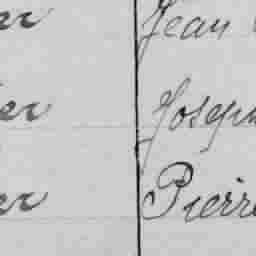 er Jean
er Joseph
er Pierre